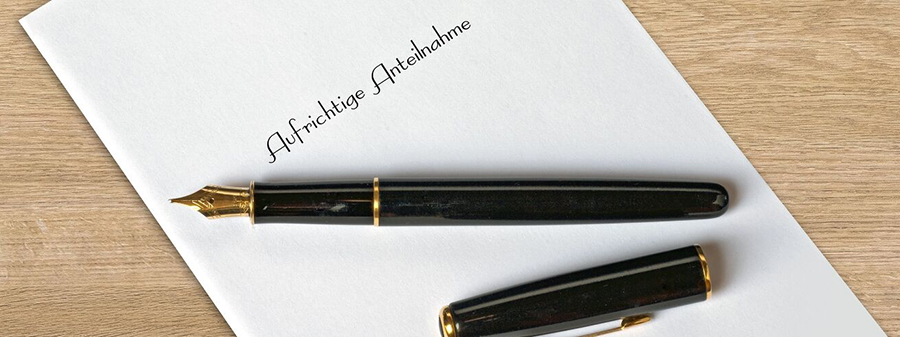 Aufrichtige Anteilnahme